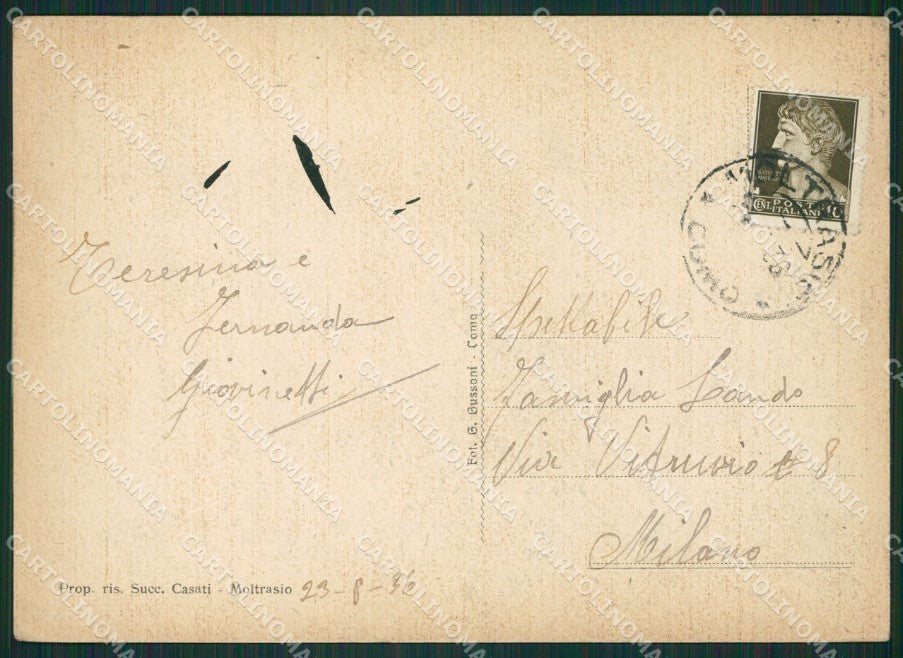 Teresina e
Fernanda
Giovinetti
Prop. ris. Succ. Casati - Moltrasio 23-8-36
Fot. G. Gussoni - Como
POSTE
ITALIANE
CENT. 10
MOLTRASIO
COMO
Spettabile
Famiglia Lando
Via Vitruvio 8
Milano
CARTOLINOMANIA